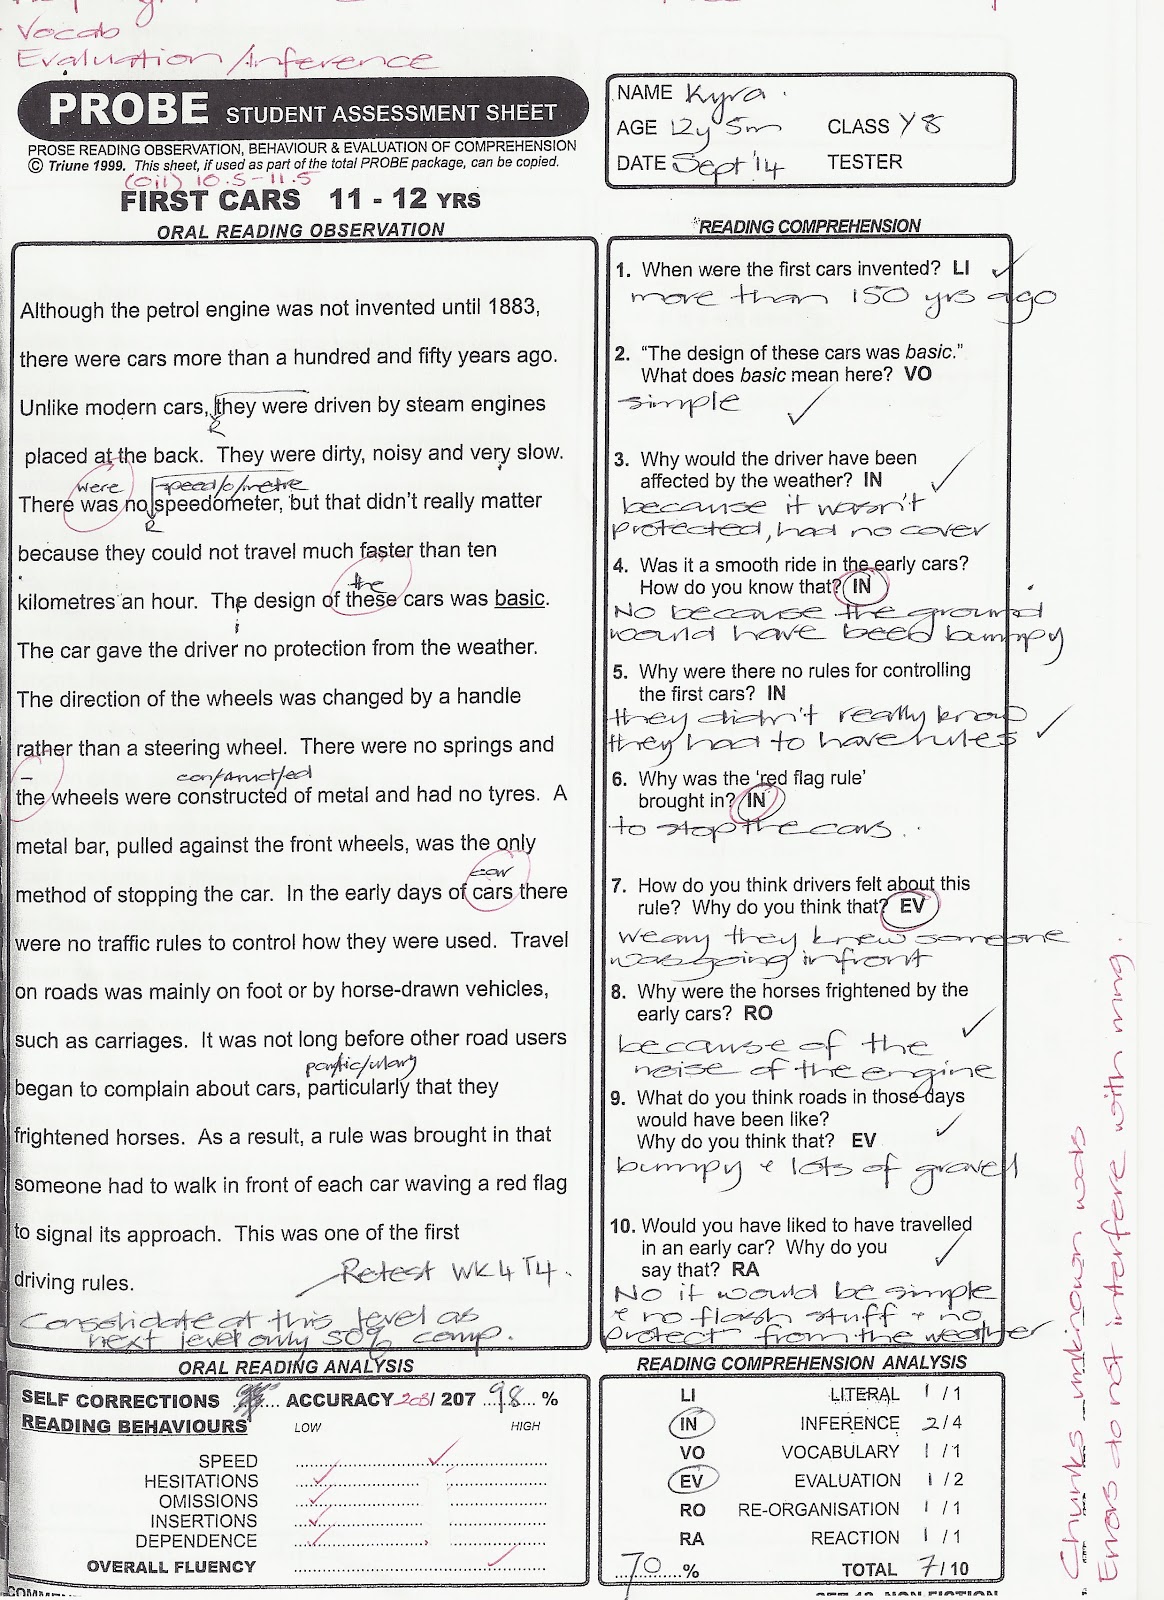 Vocab
Evaluation/Inference
PROBE STUDENT ASSESSMENT SHEET
PROSE READING OBSERVATION, BEHAVIOUR & EVALUATION OF COMPREHENSION
© Triune 1999. This sheet, if used as part of the total PROBE package, can be copied.
(Oil) 10.5-11.5
FIRST CARS 11 - 12 YRS
NAME Kyra.
AGE 12y 5m CLASS Y8
DATE Sept '14 TESTER
ORAL READING OBSERVATION
Although the petrol engine was not invented until 1883,
there were cars more than a hundred and fifty years ago.
Unlike modern cars, they were driven by steam engines
R
placed at the back. They were dirty, noisy and very slow.
were speed/o/metre
There was no speedometer, but that didn't really matter
R
because they could not travel much faster than ten
the
kilometres an hour. The design of these cars was basic.
The car gave the driver no protection from the weather.
The direction of the wheels was changed by a handle
rather than a steering wheel. There were no springs and
con/struct/ed
the wheels were constructed of metal and had no tyres. A
metal bar, pulled against the front wheels, was the only
car
method of stopping the car. In the early days of cars there
were no traffic rules to control how they were used. Travel
on roads was mainly on foot or by horse-drawn vehicles,
such as carriages. It was not long before other road users
partic/ulary
began to complain about cars, particularly that they
frightened horses. As a result, a rule was brought in that
someone had to walk in front of each car waving a red flag
to signal its approach. This was one of the first
driving rules.
Retest WK4 T4.
Consolidate at this level as
next level only 50% comp.
READING COMPREHENSION
1. When were the first cars invented? LI
more than 150 yrs ago
2. "The design of these cars was basic."
What does basic mean here? VO
simple
3. Why would the driver have been
affected by the weather? IN
because it wasn't
protected, had no cover
4. Was it a smooth ride in the early cars?
How do you know that? IN
No because the ground
would have beed bumpy
5. Why were there no rules for controlling
the first cars? IN
they didn't really know
they had to have rules
6. Why was the 'red flag rule'
brought in? IN
to stop the cars..
7. How do you think drivers felt about this
rule? Why do you think that? EV
weary they knew someone
was going infront
8. Why were the horses frightened by the
early cars? RO
because of the
noise of the engine
9. What do you think roads in those days
would have been like?
Why do you think that? EV
bumpy + lots of gravel
10. Would you have liked to have travelled
in an early car? Why do you
say that? RA
No it would be simple
+ no flash stuff + no
protect from the weather
Chunks unknown words
Errors do not interfere with mng.
ORAL READING ANALYSIS
SELF CORRECTIONS ACCURACY 203/ 207 98 %
READING BEHAVIOURS LOW HIGH
SPEED
HESITATIONS
OMISSIONS
INSERTIONS
DEPENDENCE
OVERALL FLUENCY
READING COMPREHENSION ANALYSIS
LI LITERAL 1 / 1
IN INFERENCE 2/4
VO VOCABULARY 1 / 1
EV EVALUATION 1 / 2
RO RE-ORGANISATION 1 / 1
RA REACTION 1 / 1
70 % TOTAL 7/10